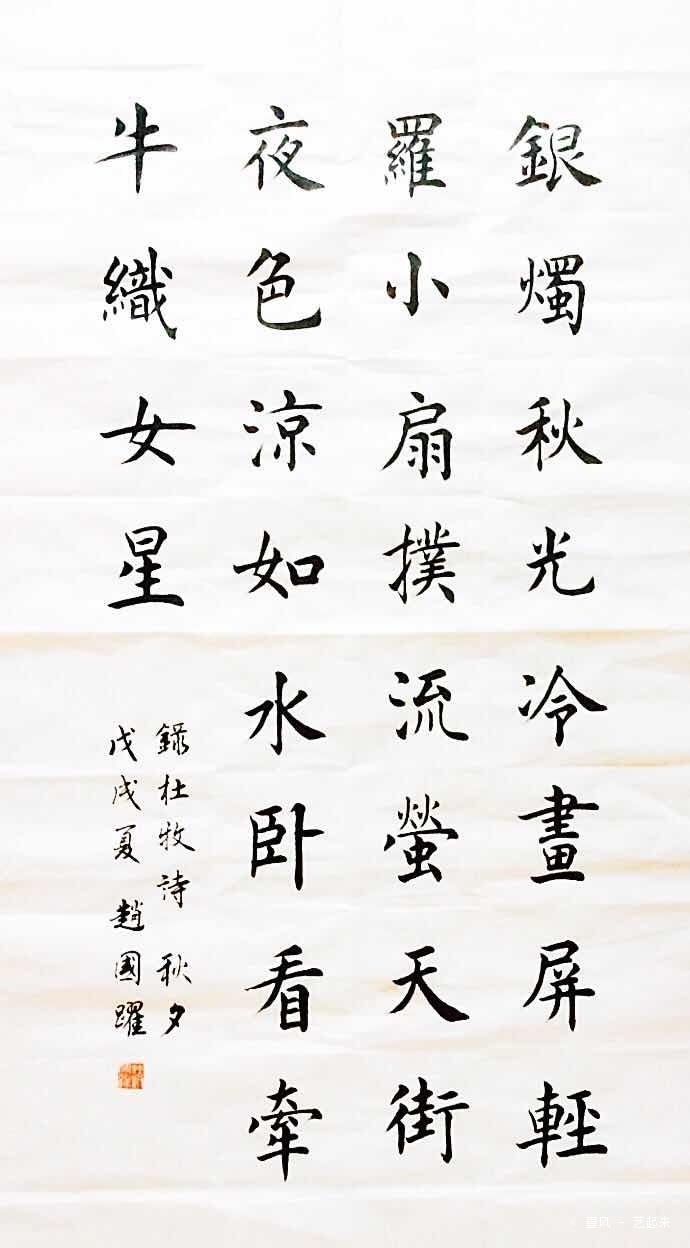 銀燭秋光冷畫屏輕
羅小扇撲流螢天街
夜色涼如水卧看牽
牛織女星
錄杜牧詩 秋夕
戊戌夏 趙國躍